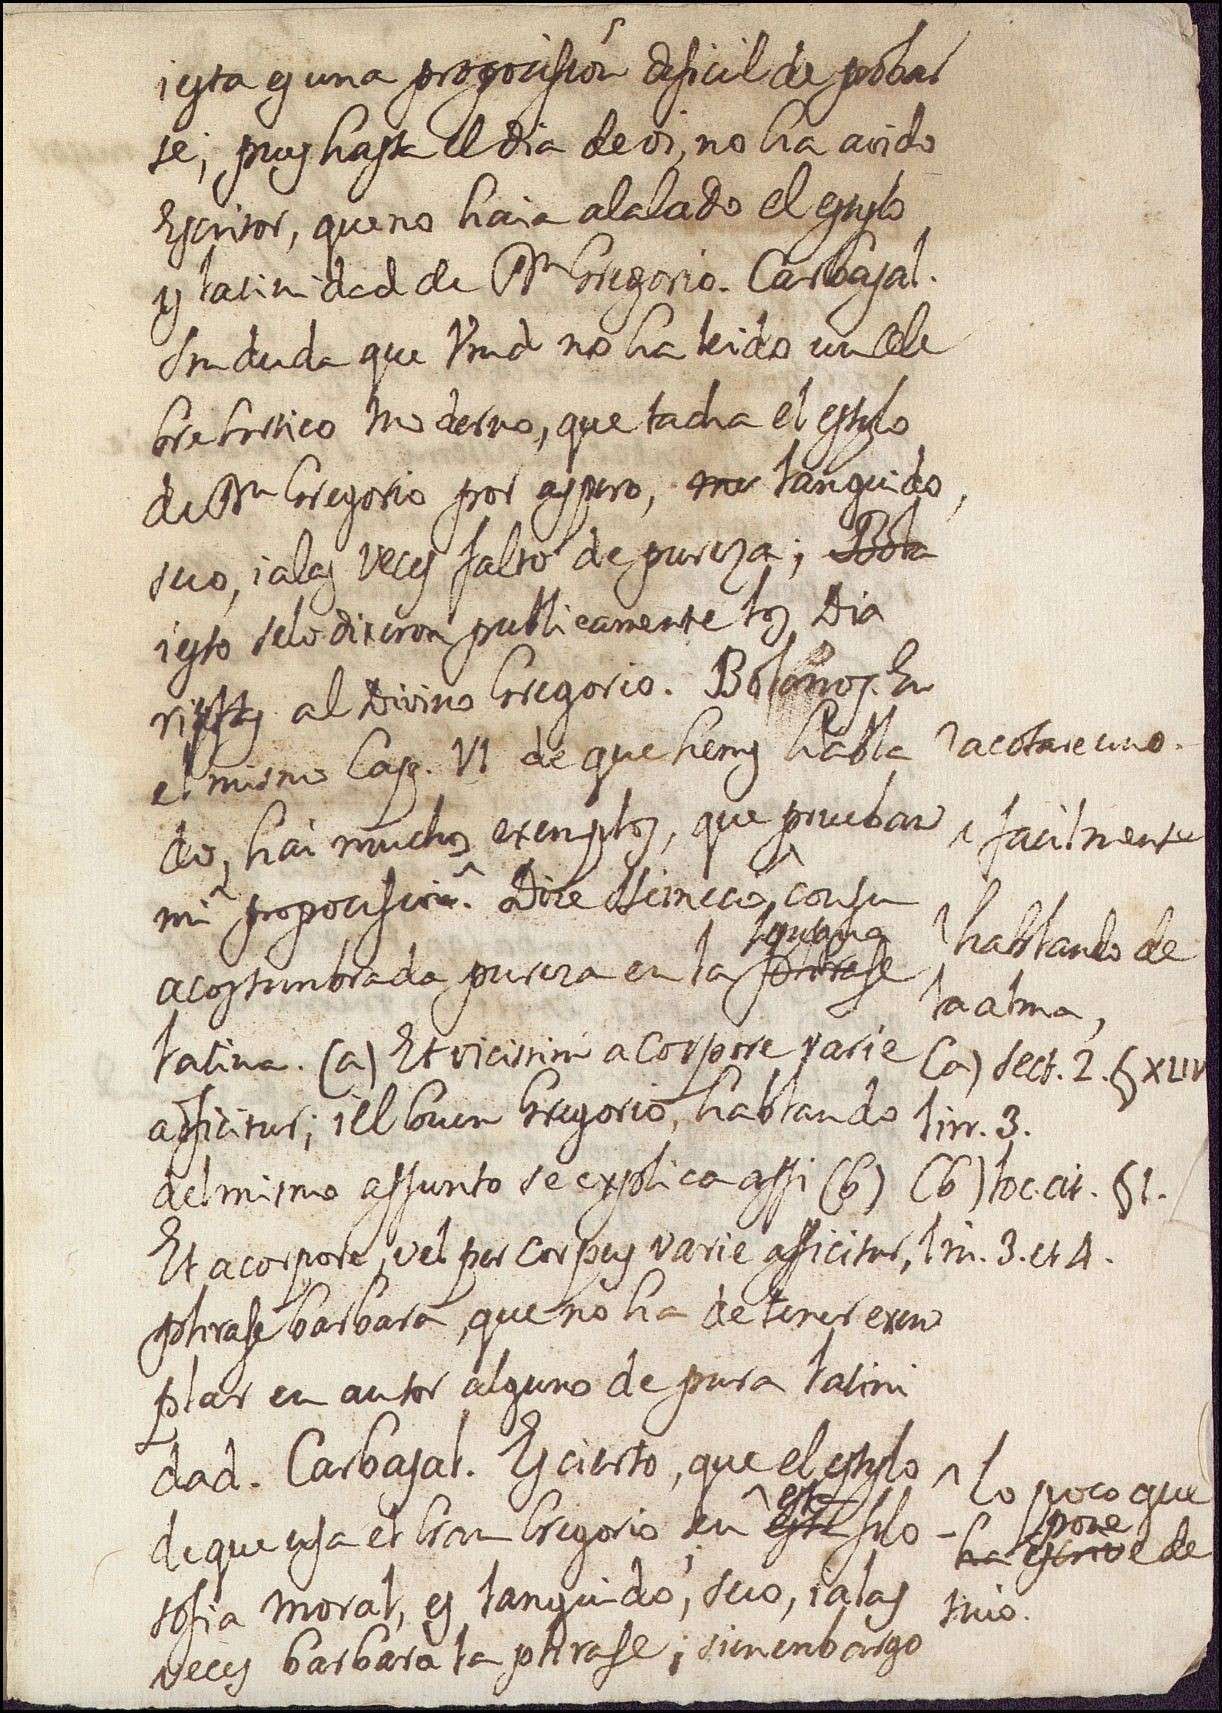 iesta es una proposission dificil de probar
se; pues hasta el dia de oi, no ha avido
Escritor, que no haia alabado el estylo
y latinidad de Dn Gregorio. Carbajal.
Sin duda que Vmd no ha leido un cele
bre Critico Moderno, que tacha el estylo
de Dn Gregorio por aspero, languido,
seco, i alas veces falto de pureza;
i esto selo dixeron publicamente los Dia
ristas al Divino Gregorio. Bolaños. En
el mismo Cap. VI de que hemos habla
do, hai muchos exemplos, que prueban
mi proposission. Dice con su
acostumbrada pureza en la lengua phrase
latina. (a) Et vicissim a corpore varie
afficitur; i el buen Gregorio, hablando
del mismo assunto se explica assi (b)
Et a corpore, vel per corpus varie afficitur,
phrase barbara, que no ha de tener exem
plar en autor alguno de pura latini
dad. Carbajal. Es cierto, que el estylo
de que usa el Gran Gregorio en esta filo
sofia moral, es languido, seco, i alas
veces barbara la phrase; sinembargo
acotare uno.
facilmente
hablando de
la alma,
(a) sect. 2. § XLIV
lin. 3.
(b) loc. cit. § 1.
lin. 3. et 4.
lo poco que
pone
ha escrive de
suio.